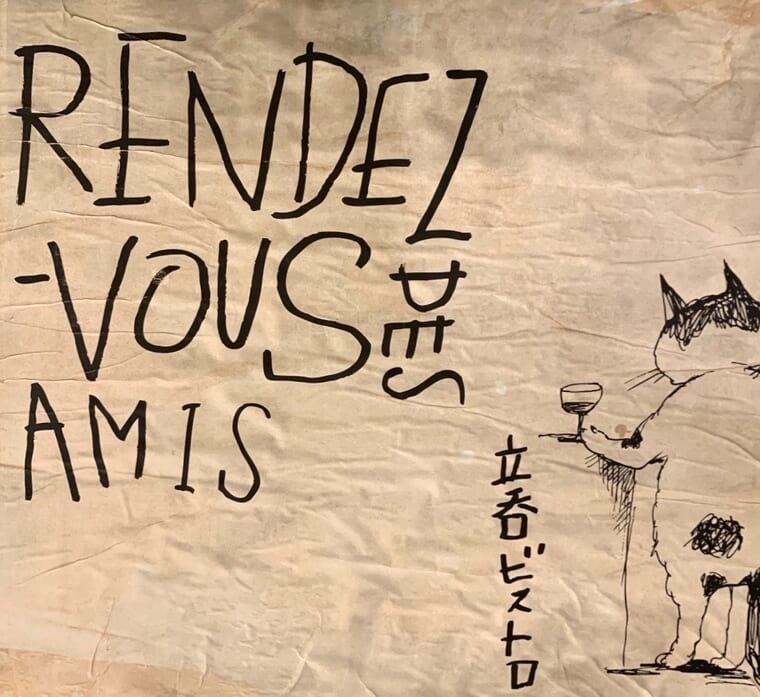 RENDEZ
-VOUS
DES
AMIS
立呑ビストロ